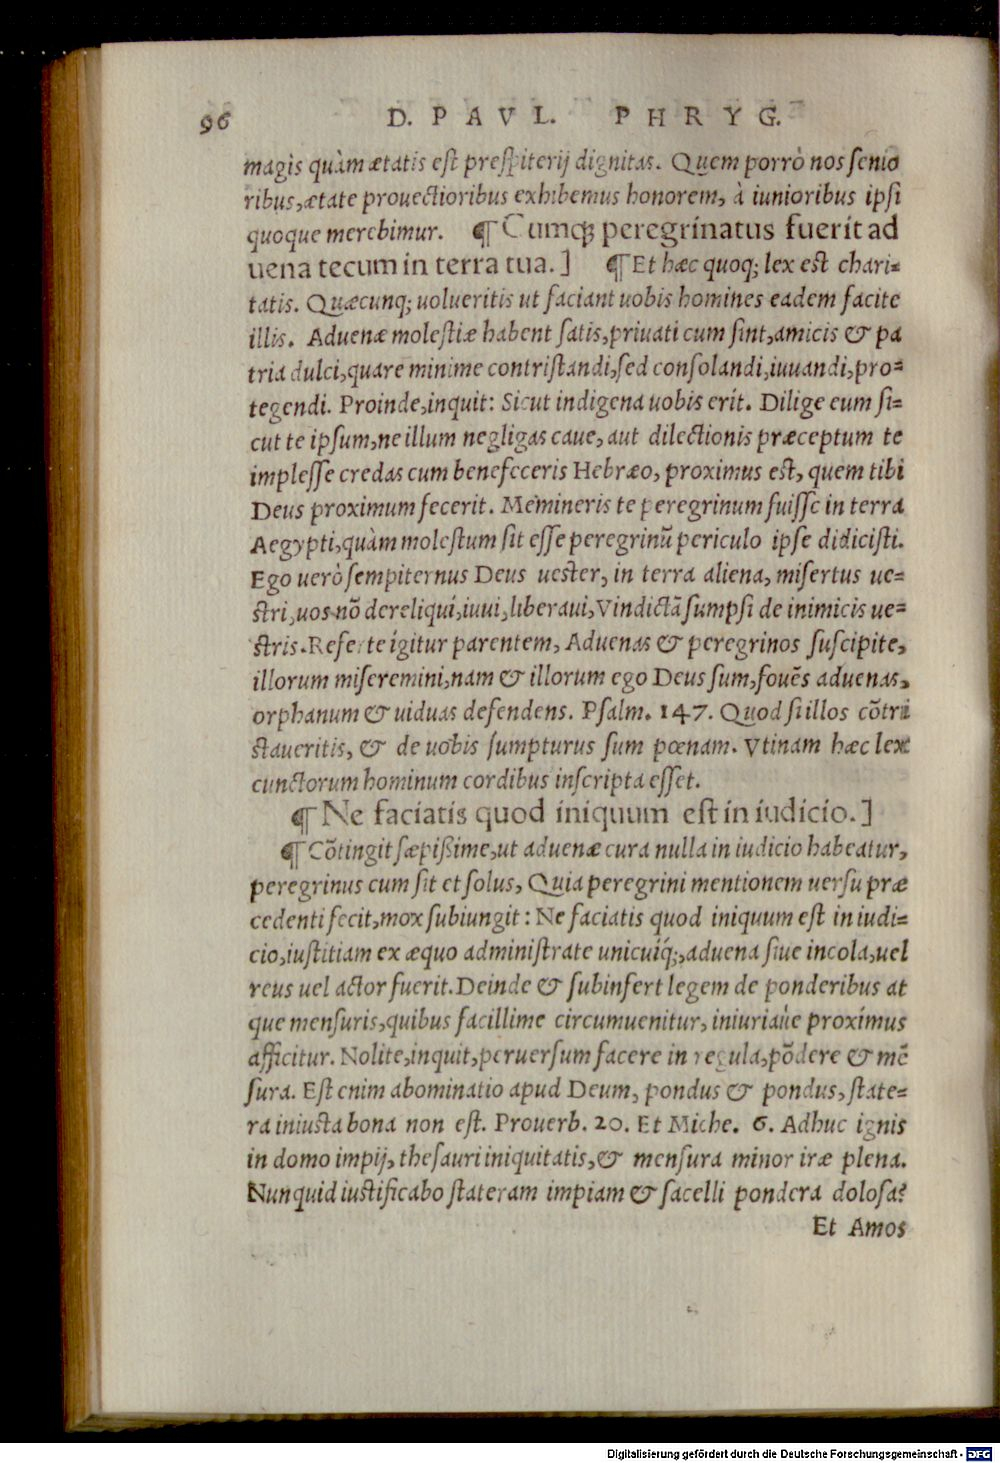 96 D. PAVL. PHRYG.
magis quàm ætatis est prespiterij dignitas. Quem porrò nos senio
ribus, ætate prouectioribus exhibemus honorem, à iunioribus ipsi
quoque merebimur. ¶ Cumq; peregrinatus fuerit ad
uena tecum in terra tua.] ¶ Et hæc quoq; lex est chari=
tatis. Quæcunq; uolueritis ut faciant uobis homines eadem facite
illis. Aduenæ molestiæ habent satis, priuati cum sint, amicis & pa
tria dulci, quare minime contristandi, sed consolandi, iuuandi, pro=
tegendi. Proinde, inquit: Sicut indigena uobis erit. Dilige eum si=
cut te ipsum, ne illum negligas caue, aut dilectionis præceptum te
implesse credas cum benefeceris Hebræo, proximus est, quem tibi
Deus proximum fecerit. Memineris te peregrinum fuisse in terra
Aegypti, quàm molestum sit esse peregrinũ periculo ipse didicisti.
Ego uerò sempiternus Deus uester, in terra aliena, misertus ue=
stri, uos nõ dereliqui, iuui, liberaui, Vindictã sumpsi de inimicis ue=
stris. Referte igitur parentem, Aduenas & peregrinos suscipite,
illorum miseremini, nam & illorum ego Deus sum, fouẽs aduenas,
orphanum & uiduas defendens. Psalm. 147. Quod si illos cõtri
staueritis, & de uobis sumpturus sum pœnam. Vtinam hæc lex
cunctorum hominum cordibus inscripta esset.
¶ Ne faciatis quod iniquum est in iudicio.]
¶ Cõtingit sæpißime, ut aduenæ cura nulla in iudicio habeatur,
peregrinus cum sit et solus, Quia peregrini mentionem uersu præ
cedenti fecit, mox subiungit: Ne faciatis quod iniquum est in iudi=
cio, iustitiam ex æquo administrate unicuiq́;, aduena siue incola, uel
reus uel actor fuerit. Deinde & subinfert legem de ponderibus at
que mensuris, quibus facillime circumuenitur, iniuriaue proximus
afficitur. Nolite, inquit, peruersum facere in regula, põdere & mẽ
sura. Est enim abominatio apud Deum, pondus & pondus, state=
ra iniusta bona non est. Prouerb. 20. Et Miche. 6. Adhuc ignis
in domo impij, thesauri iniquitatis, & mensura minor iræ plena.
Nunquid iustificabo stateram impiam & sacelli pondera dolosa?
Et Amos
Digitalisierung gefördert durch die Deutsche Forschungsgemeinschaft - DFG